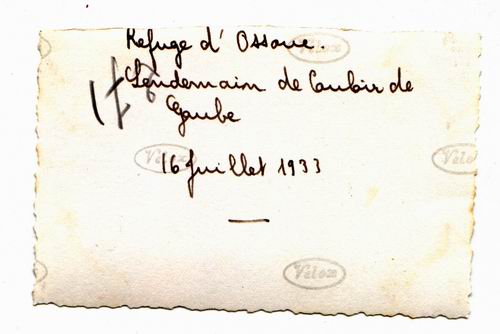 Refuge d' Ossoue.
Lendemain de Coubir de
Gaube
178
16 Juillet 1933
Velox
Velox
Velox
Velox